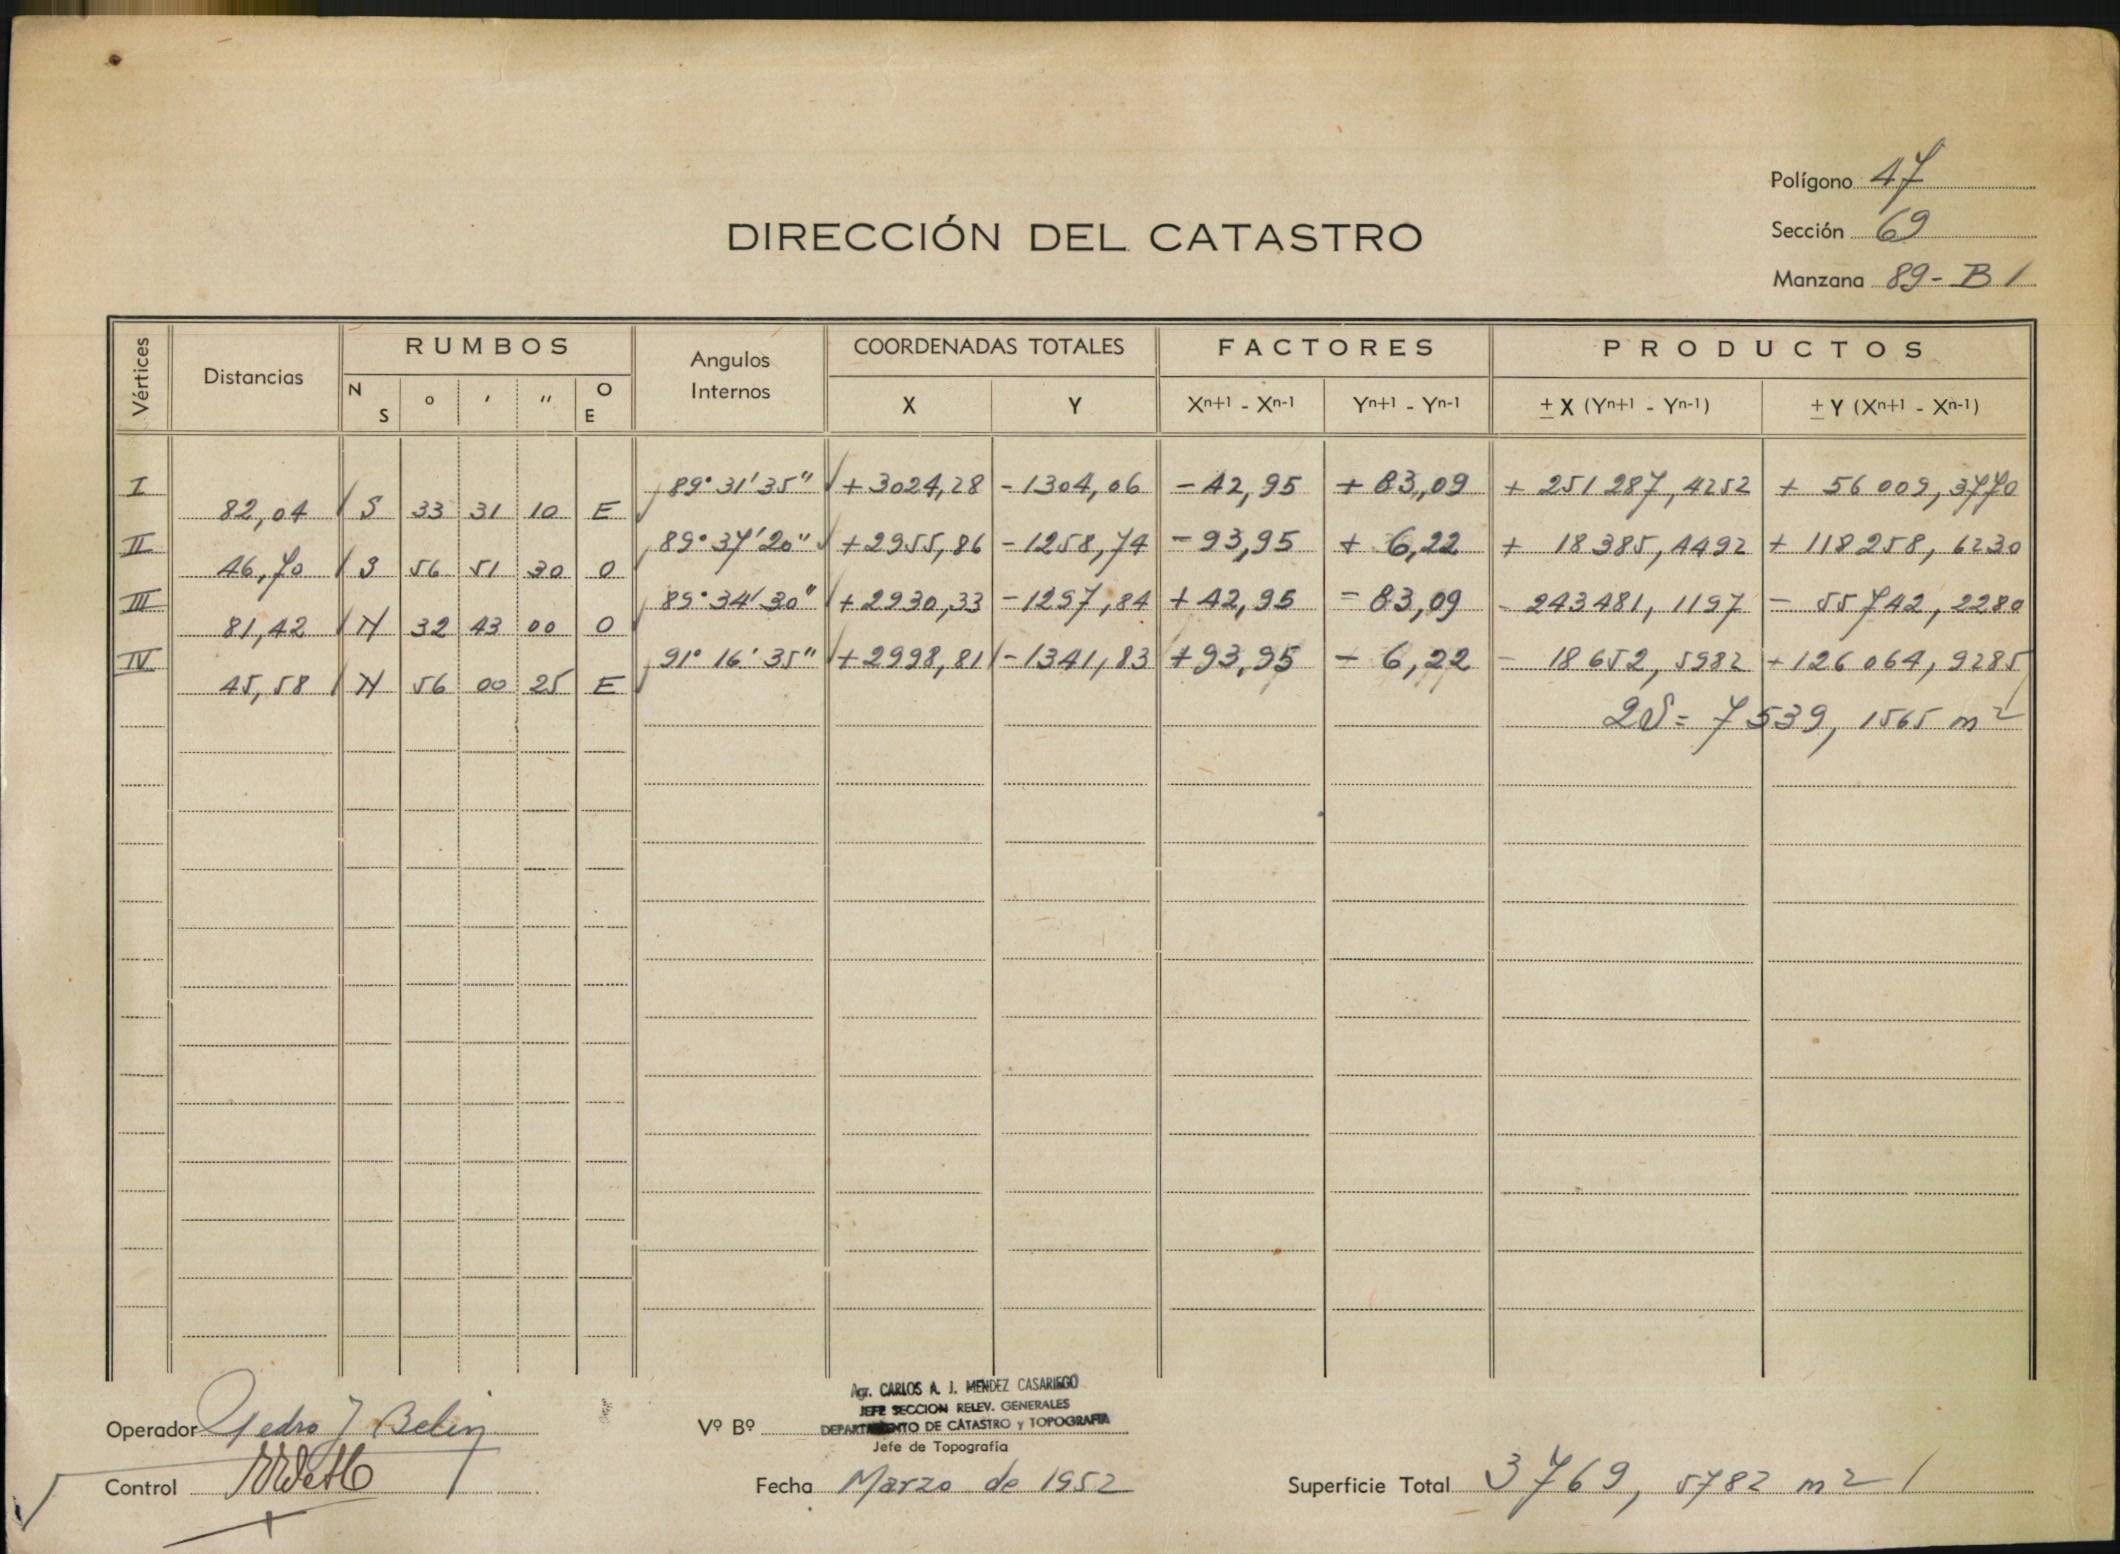 Polígono 47
DIRECCIÓN DEL CATASTRO
Sección 69
Manzana 89-B/
Vértices Distancias RUMBOS Angulos Internos COORDENADAS TOTALES FACTORES PRODUCTOS
N S ° ' " O E X Y Xn+1 - Xn-1 Yn+1 - Yn-1 ± X (Yn+1 - Yn-1) ± Y (Xn+1 - Xn-1)
I 89° 31' 35" +3024,28 -1304,06 -42,95 +83,09 + 251 287,4252 + 56 009,3770
82,04 S 33 31 10 E
II 89° 37' 20" +2955,86 -1258,74 -93,95 + 6,22 + 18 385,4492 + 118 258,6230
46,70 S 56 51 30 O
III 89° 34' 30" +2930,33 -1297,84 +42,95 -83,09 - 243 481,1197 - 55 742,2280
81,42 N 32 43 00 O
IV 91° 16' 35" +2998,81 -1341,83 +93,95 - 6,22 - 18 652,5982 +126 064,9285
45,58 N 56 00 25 E
2S = 7539,1565 m2
Agr. CARLOS A. J. MENDEZ CASARIEGO
JEFE SECCION RELEV. GENERALES
Operador Pedro J Belin Vº Bº DEPARTAMENTO DE CATASTRO y TOPOGRAFIA
Jefe de Topografía
Control Fecha Marzo de 1952 Superficie Total 3769,5782 m2 /